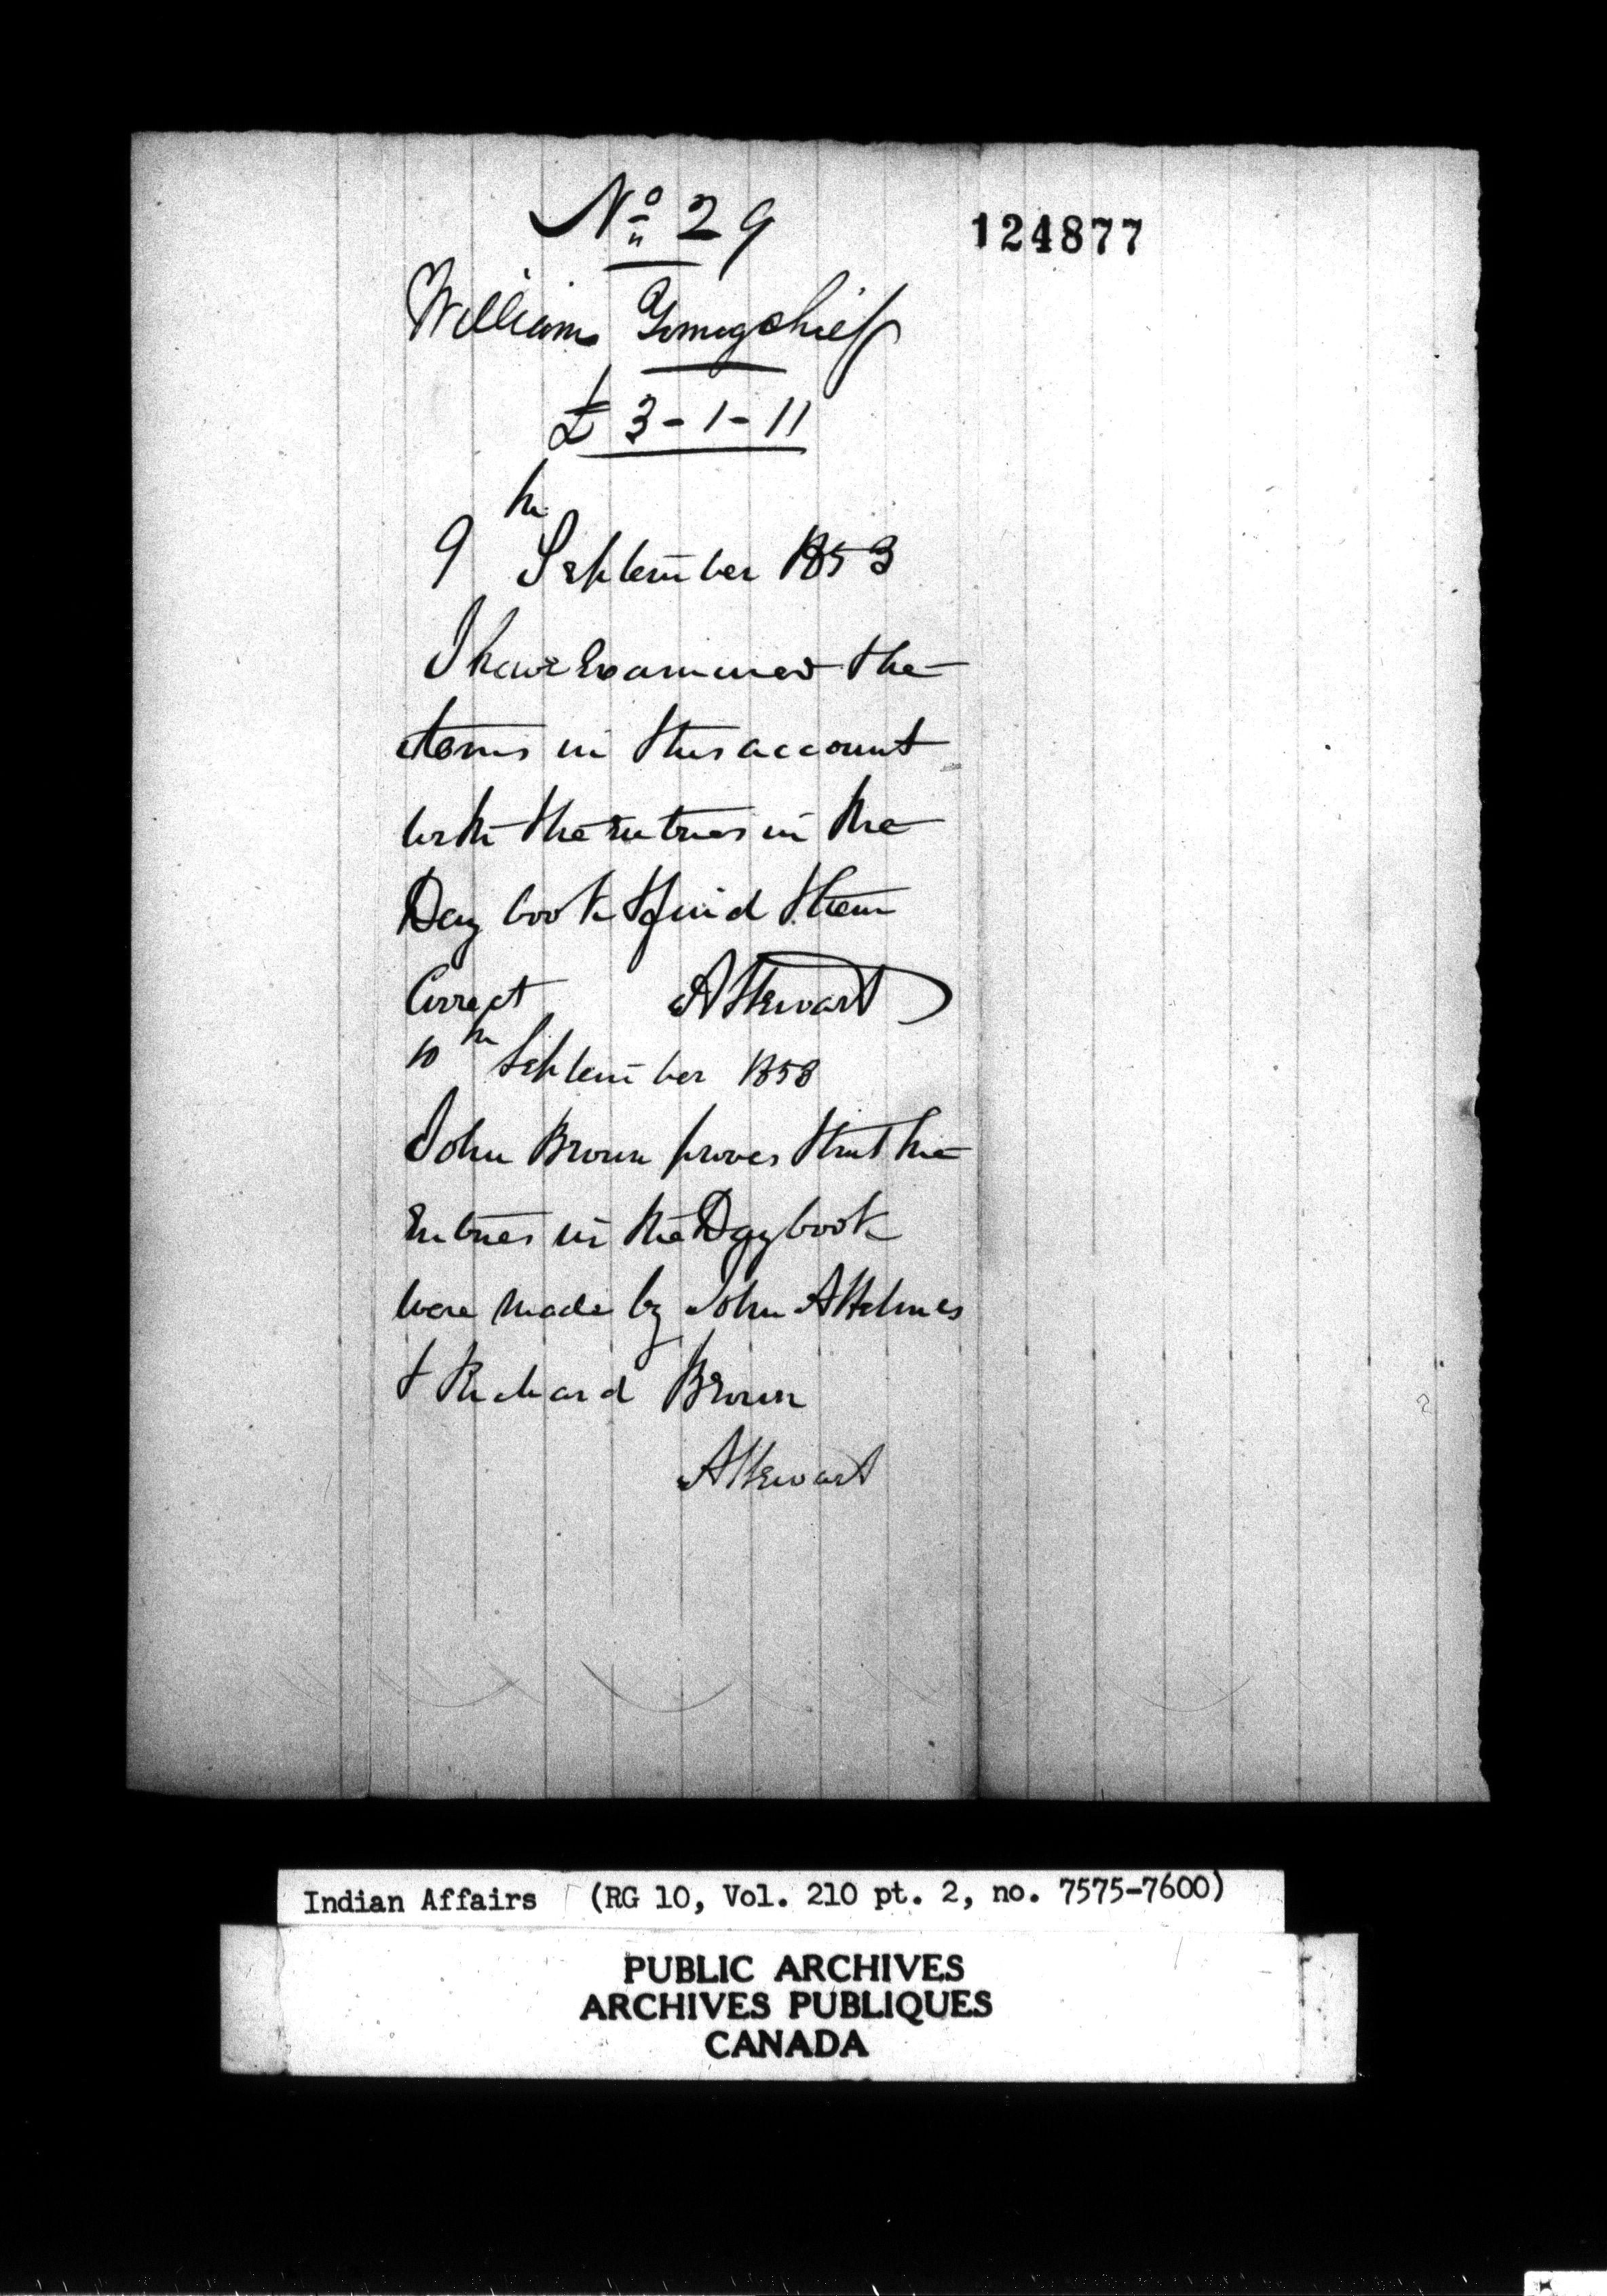 No 29
124877
William Youngchief
£ 3-1-11
9th September 1853
I have Examined the
items in this account
with the Entries in the
Day book & find them
Correct AStewart
10th September 1853
John Brown proves that the
Entries in the Day book
were made by John A Holmes
& Richard Brown
AStewart
Indian Affairs (RG 10, Vol. 210 pt. 2, no. 7575-7600)
PUBLIC ARCHIVES
ARCHIVES PUBLIQUES
CANADA